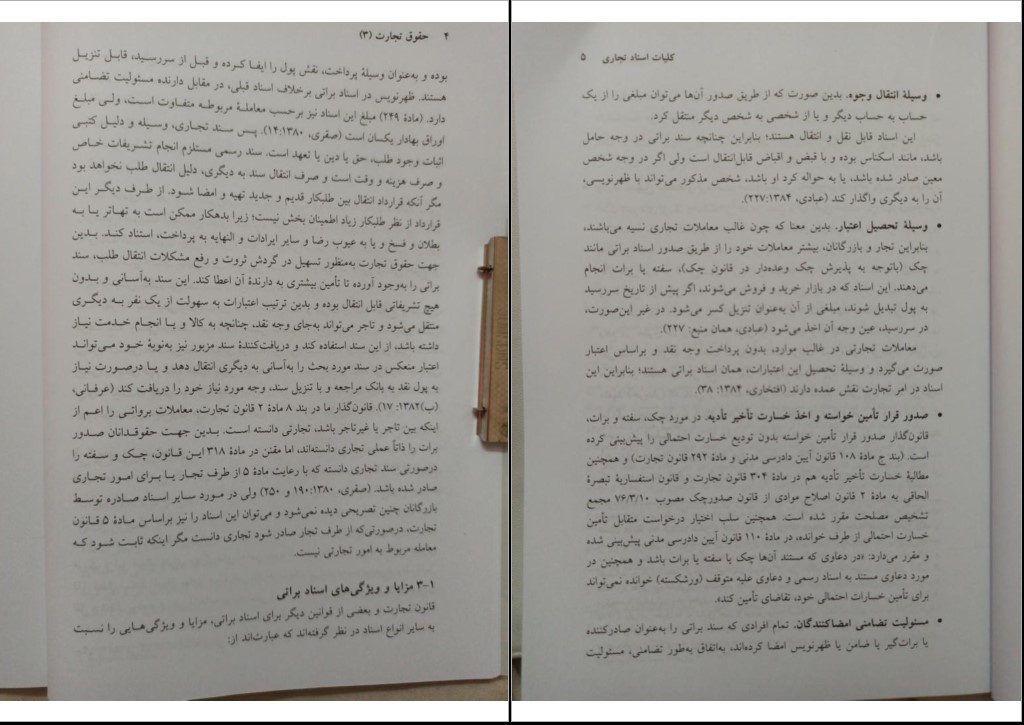 ۴ حقوق تجارت (۳)
بوده و به‌عنوان وسیلهٔ پرداخت، نقش پول را ایفا کرده و قبل از سررسید، قابل تنزیل
هستند. ظهرنویس در اسناد براتی برخلاف اسناد قبلی، در مقابل دارنده مسئولیت تضامنی
دارد. (مادهٔ ۲۴۹) مبلغ این اسناد نیز برحسب معاملهٔ مربوطه متفاوت است، ولی مبلغ
اوراق بهادار یکسان است (صفری، ۱۴:۱۳۸۰). پس سند تجاری، وسیله و دلیل کتبی
اثبات وجود طلب، حق یا دین یا تعهد است. سند رسمی مستلزم انجام تشریفات خاص
و صرف هزینه و وقت است و صرف انتقال سند به دیگری، دلیل انتقال طلب نخواهد بود
مگر آنکه قرارداد انتقال بین طلبکار قدیم و جدید تهیه و امضا شود. از طرف دیگر این
قرارداد از نظر طلبکار زیاد اطمینان بخش نیست؛ زیرا بدهکار ممکن است به تهاتر یا به
بطلان و فسخ و یا به عیوب رضا و سایر ایرادات و النهایه به پرداخت، استناد کند. بدین
جهت حقوق تجارت به‌منظور تسهیل در گردش ثروت و رفع مشکلات انتقال طلب، سند
براتی را به‌وجود آورده تا تأمین بیشتری به دارندهٔ آن اعطا کند. این سند به‌آسانی و بدون
هیچ تشریفاتی قابل انتقال بوده و بدین ترتیب اعتبارات به سهولت از یک نفر به دیگری
منتقل می‌شود و تاجر می‌تواند به‌جای وجه نقد، چنانچه به کالا و یا انجام خدمت نیاز
داشته باشد، از این سند استفاده کند و دریافت‌کنندهٔ سند مزبور نیز به‌نوبهٔ خود می‌تواند
اعتبار منعکس در سند مورد بحث را به‌آسانی به دیگری انتقال دهد و یا درصورت نیاز
به پول نقد به بانک مراجعه و با تنزیل سند، وجه مورد نیاز خود را دریافت کند (عرفانی،
(ب)۱۳۸۲: ۱۷). قانون‌گذار ما در بند ۸ مادهٔ ۲ قانون تجارت، معاملات برواتی را اعم از
اینکه بین تاجر یا غیرتاجر باشد، تجارتی دانسته است. بدین جهت حقوقدانان صدور
برات را ذاتاً عملی تجاری دانسته‌اند، اما مقنن در مادهٔ ۳۱۸ این قانون، چک و سفته را
درصورتی سند تجاری دانسته که با رعایت مادهٔ ۵ از طرف تجار یا برای امور تجاری
صادر شده باشد. (صفری، ۱۹۰:۱۳۸۰ و ۲۵۰) ولی در مورد سایر اسناد صادره توسط
بازرگانان چنین تصریحی دیده نمی‌شود و می‌توان این اسناد را نیز براساس مادهٔ ۵ قانون
تجارت، درصورتی‌که از طرف تجار صادر شود تجاری دانست مگر اینکه ثابت شود که
معامله مربوط به امور تجارتی نیست.
۳-۱ مزایا و ویژگی‌های اسناد براتی
قانون تجارت و بعضی از قوانین دیگر برای اسناد براتی، مزایا و ویژگی‌هایی را نسبت
به سایر انواع اسناد در نظر گرفته‌اند که عبارت‌اند از:
کلیات اسناد تجاری ۵
• وسیلهٔ انتقال وجوه. بدین صورت که از طریق صدور آن‌ها می‌توان مبلغی را از یک
حساب به حساب دیگر و یا از شخصی به شخص دیگر منتقل کرد.
این اسناد قابل نقل و انتقال هستند؛ بنابراین چنانچه سند براتی در وجه حامل
باشد، مانند اسکناس بوده و با قبض و اقباض قابل‌انتقال است ولی اگر در وجه شخص
معین صادر شده باشد، یا به حواله کرد او باشد، شخص مذکور می‌تواند با ظهرنویسی،
آن را به دیگری واگذار کند (عبادی، ۲۲۷:۱۳۸۴).
• وسیلهٔ تحصیل اعتبار. بدین معنا که چون غالب معاملات تجاری نسیه می‌باشند،
بنابراین تجار و بازرگانان، بیشتر معاملات خود را از طریق صدور اسناد براتی مانند
چک (باتوجه به پذیرش چک وعده‌دار در قانون چک)، سفته یا برات انجام
می‌دهند. این اسناد که در بازار خرید و فروش می‌شوند، اگر پیش از تاریخ سررسید
به پول تبدیل شوند، مبلغی از آن به‌عنوان تنزیل کسر می‌شود. در غیر این‌صورت،
در سررسید، عین وجه آن اخذ می‌شود (عبادی، همان منبع: ۲۲۷).
معاملات تجارتی در غالب موارد، بدون پرداخت وجه نقد و براساس اعتبار
صورت می‌گیرد و وسیلهٔ تحصیل این اعتبارات، همان اسناد براتی هستند؛ بنابراین این
اسناد در امر تجارت نقش عمده دارند (افتخاری، ۱۳۸۴: ۳۸).
• صدور قرار تأمین خواسته و اخذ خسارت تأخیر تأدیه. در مورد چک، سفته و برات،
قانون‌گذار صدور قرار تأمین خواسته بدون تودیع خسارت احتمالی را پیش‌بینی کرده
است. (بند ج مادهٔ ۱۰۸ قانون آیین دادرسی مدنی و مادهٔ ۲۹۲ قانون تجارت) و همچنین
مطالبهٔ خسارت تأخیر تأدیه هم در مادهٔ ۳۰۴ قانون تجارت و قانون استفساریهٔ تبصرهٔ
الحاقی به مادهٔ ۲ قانون اصلاح موادی از قانون صدورچک مصوب ۷۶/۳/۱۰ مجمع
تشخیص مصلحت مقرر شده است. همچنین سلب اختیار درخواست متقابل تأمین
خسارت احتمالی از طرف خوانده، در مادهٔ ۱۱۰ قانون آیین دادرسی مدنی پیش‌بینی شده
و مقرر می‌دارد: «در دعاوی که مستند آن‌ها چک یا سفته یا برات باشد و همچنین در
مورد دعاوی مستند به اسناد رسمی و دعاوی علیه متوقف (ورشکسته) خوانده نمی‌تواند
برای تأمین خسارات احتمالی خود، تقاضای تأمین کند».
• مسئولیت تضامنی امضاکنندگان. تمام افرادی که سند براتی را به‌عنوان صادرکننده
یا برات‌گیر یا ضامن یا ظهرنویس امضا کرده‌اند، به‌اتفاق به‌طور تضامنی، مسئولیت